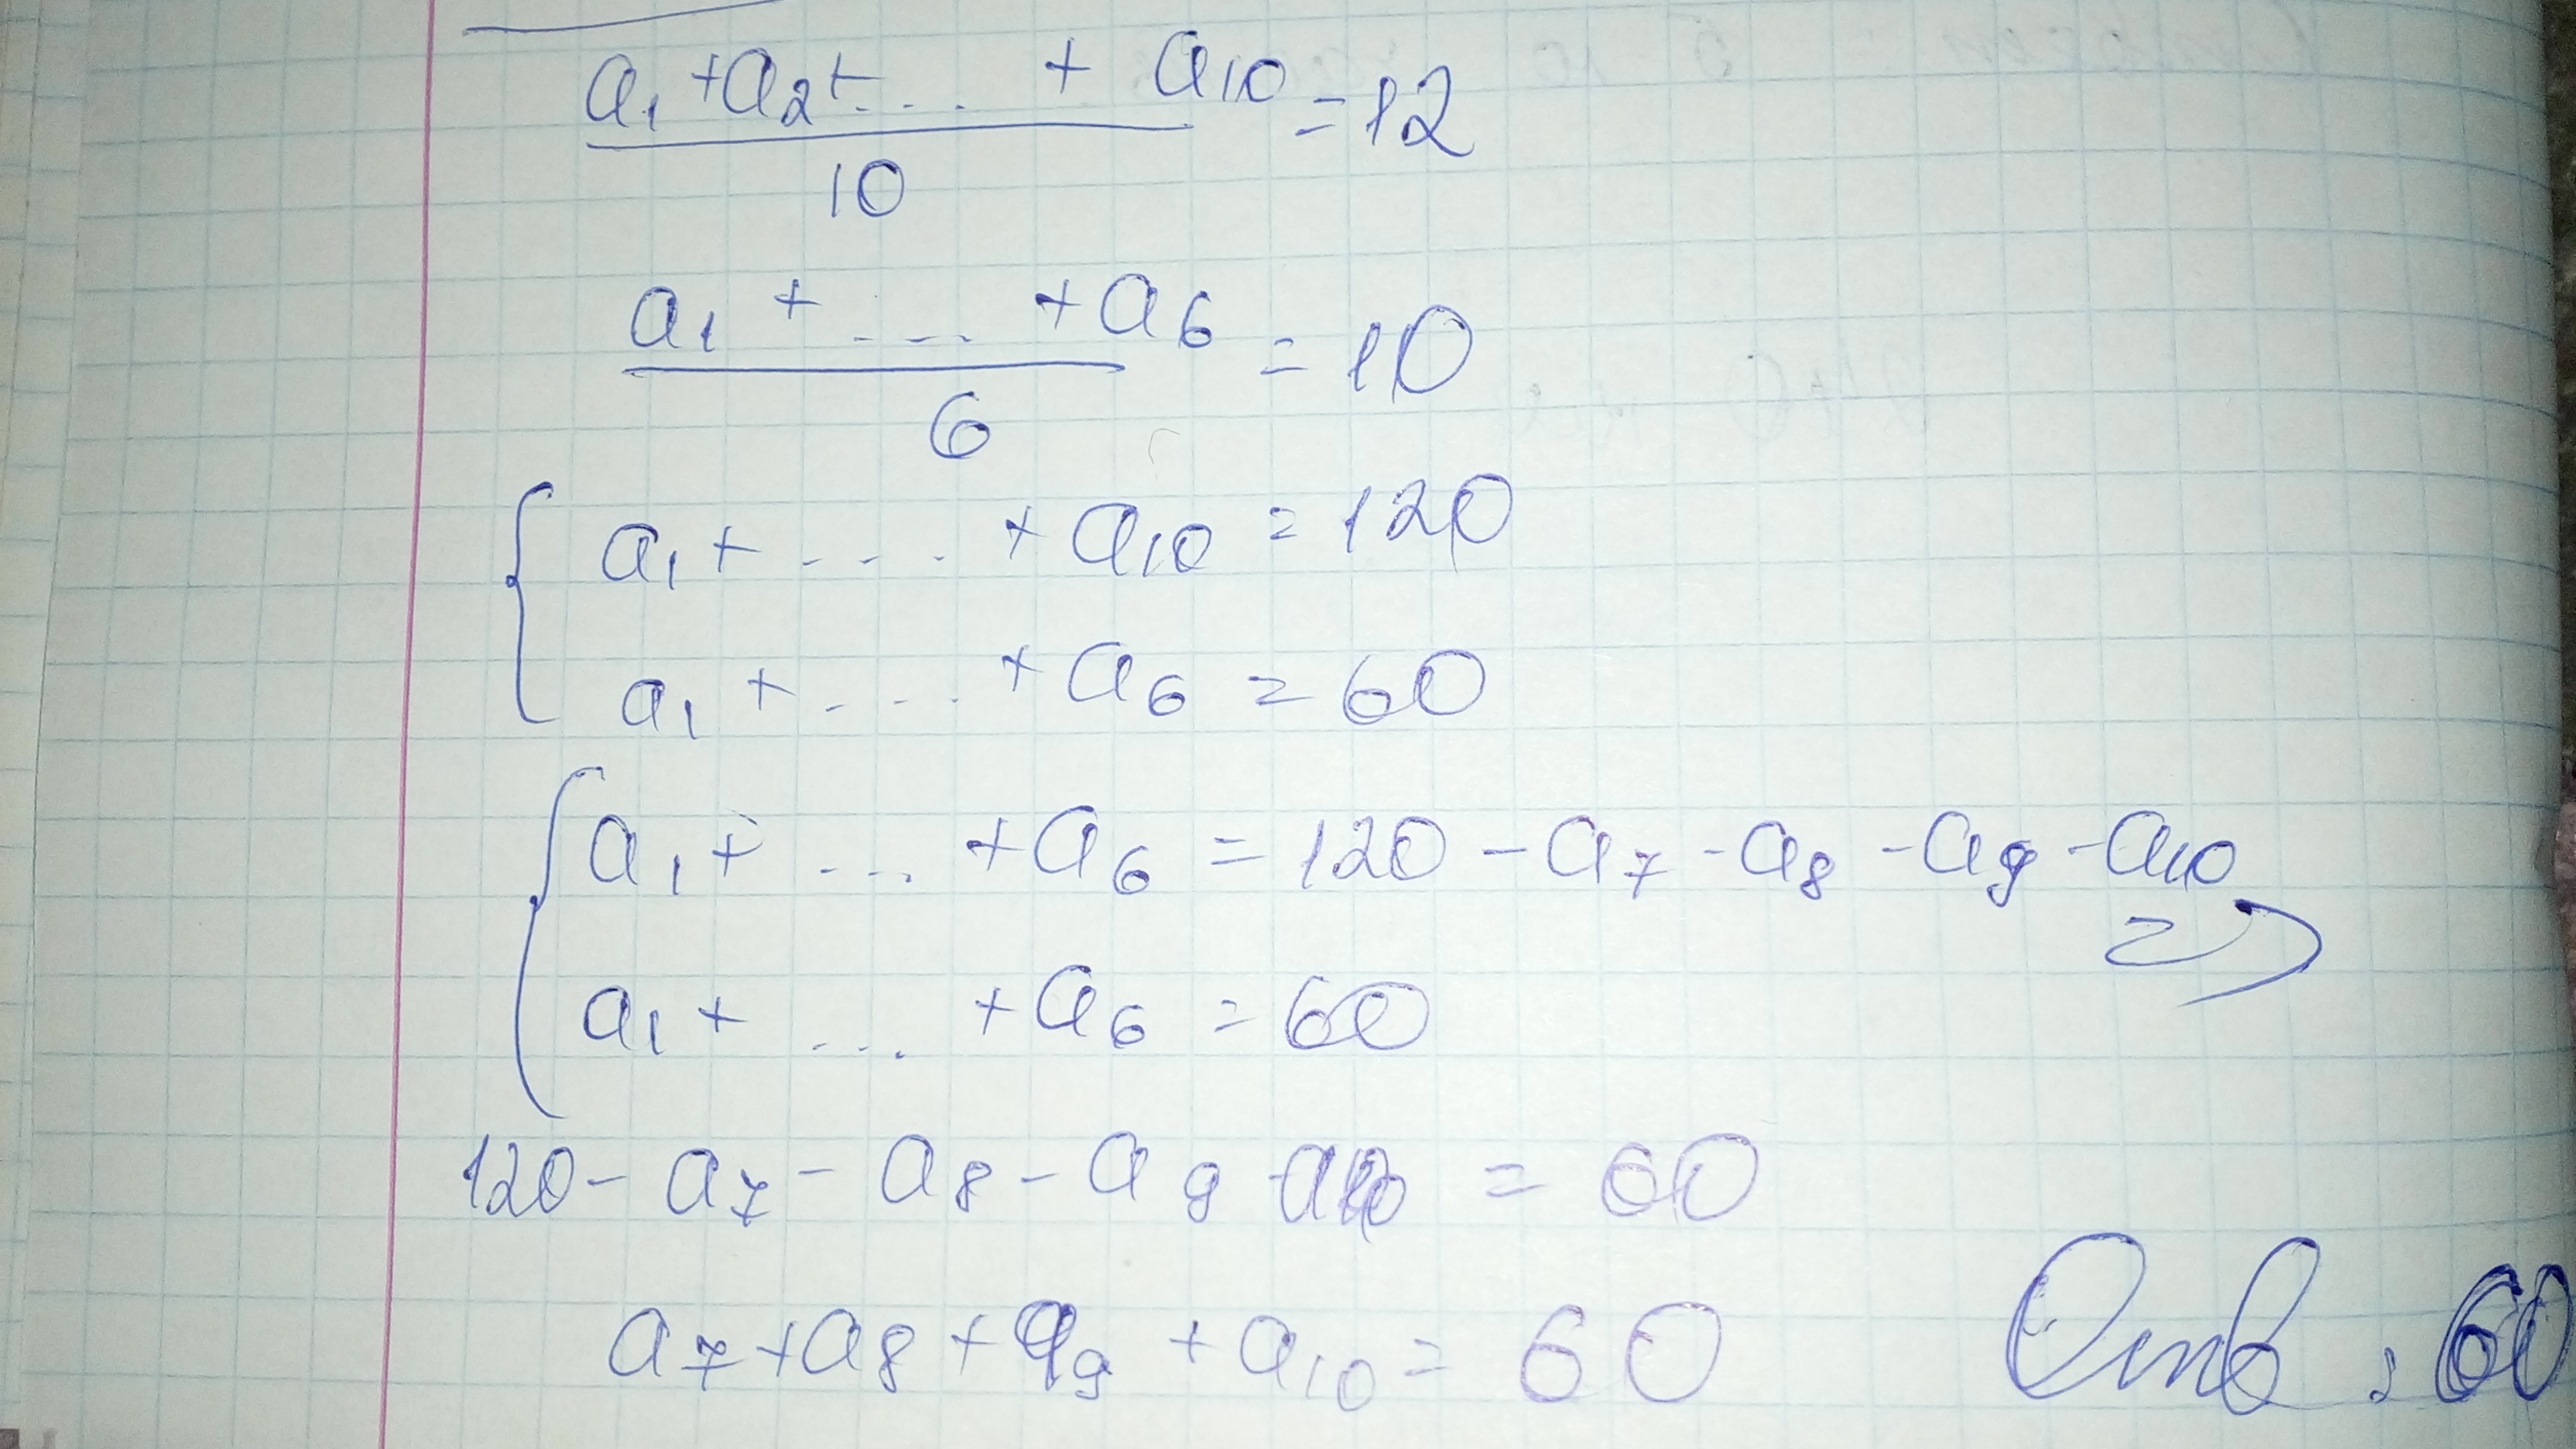 a₁ + a₂ + ... + a₁₀ = 12
10
a₁ + ... + a₆ = 10
6
a₁ + ... + a₁₀ = 120
a₁ + ... + a₆ = 60
a₁ + ... + a₆ = 120 - a₇ - a₈ - a₉ - a₁₀
=>
a₁ + ... + a₆ = 60
120 - a₇ - a₈ - a₉ - a₁₀ = 60
a₇ + a₈ + a₉ + a₁₀ = 60
Отв: 60